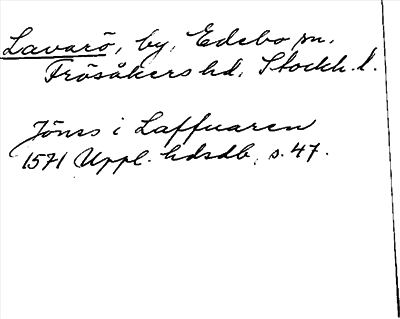 Lavarö, by, Edebo sn.
Frösåkers hd, Stockh. l.
Jöns i Laffuaren
1571 Uppl. hdsdb, s. 47.